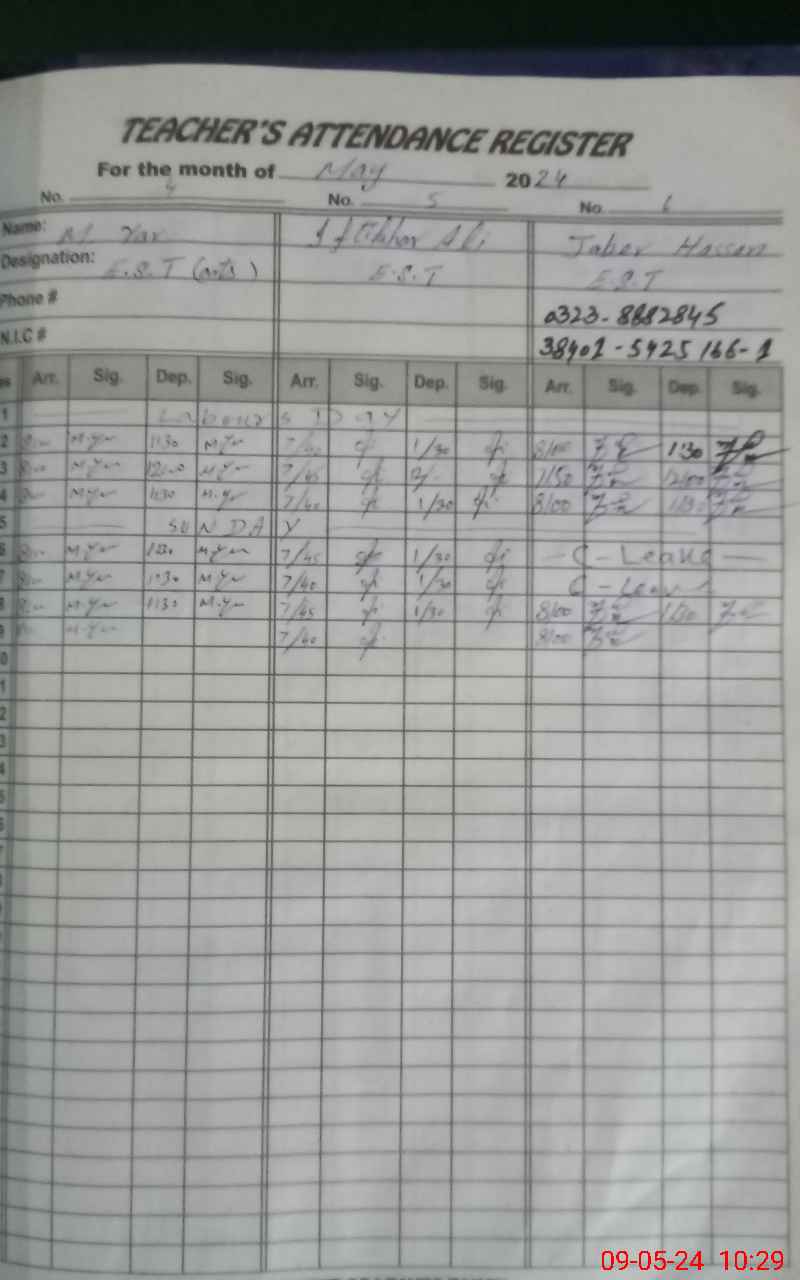 TEACHER'S ATTENDANCE REGISTER
For the month of May 2024
No. 4 No. 5 No. 6
Name: M. Yar Iftikhar Ali Jaber Hassan
Designation: E.S.T (arts) E.S.T E.S.T
Phone # 0323-8882845
N.I.C # 38401-5425166-1
Arr. Sig. Dep. Sig. Arr. Sig. Dep. Sig. Arr. Sig. Dep. Sig.
1 Labour's Day
2 M.Yar 1130 M.Yar 7/40 1/30 8/00 1:30
3 M.Yar 12/00 M.Yar 7/45 12/- 7/50 12/00
4 M.Yar 1130 M.Yar 7/40 1/30 8/00 1/30
5 SUNDAY
6 M.Yar 1130 M.Yar 7/45 1/30 C-Leave
7 M.Yar 1130 M.Yar 7/40 1/30 C-Leave
8 M.Yar 1130 M.Yar 7/45 1/30 8/00 1/30
9 M.Yar 7/40 8/00
0
1
2
3
4
5
6
7
8
9
09-05-24 10:29